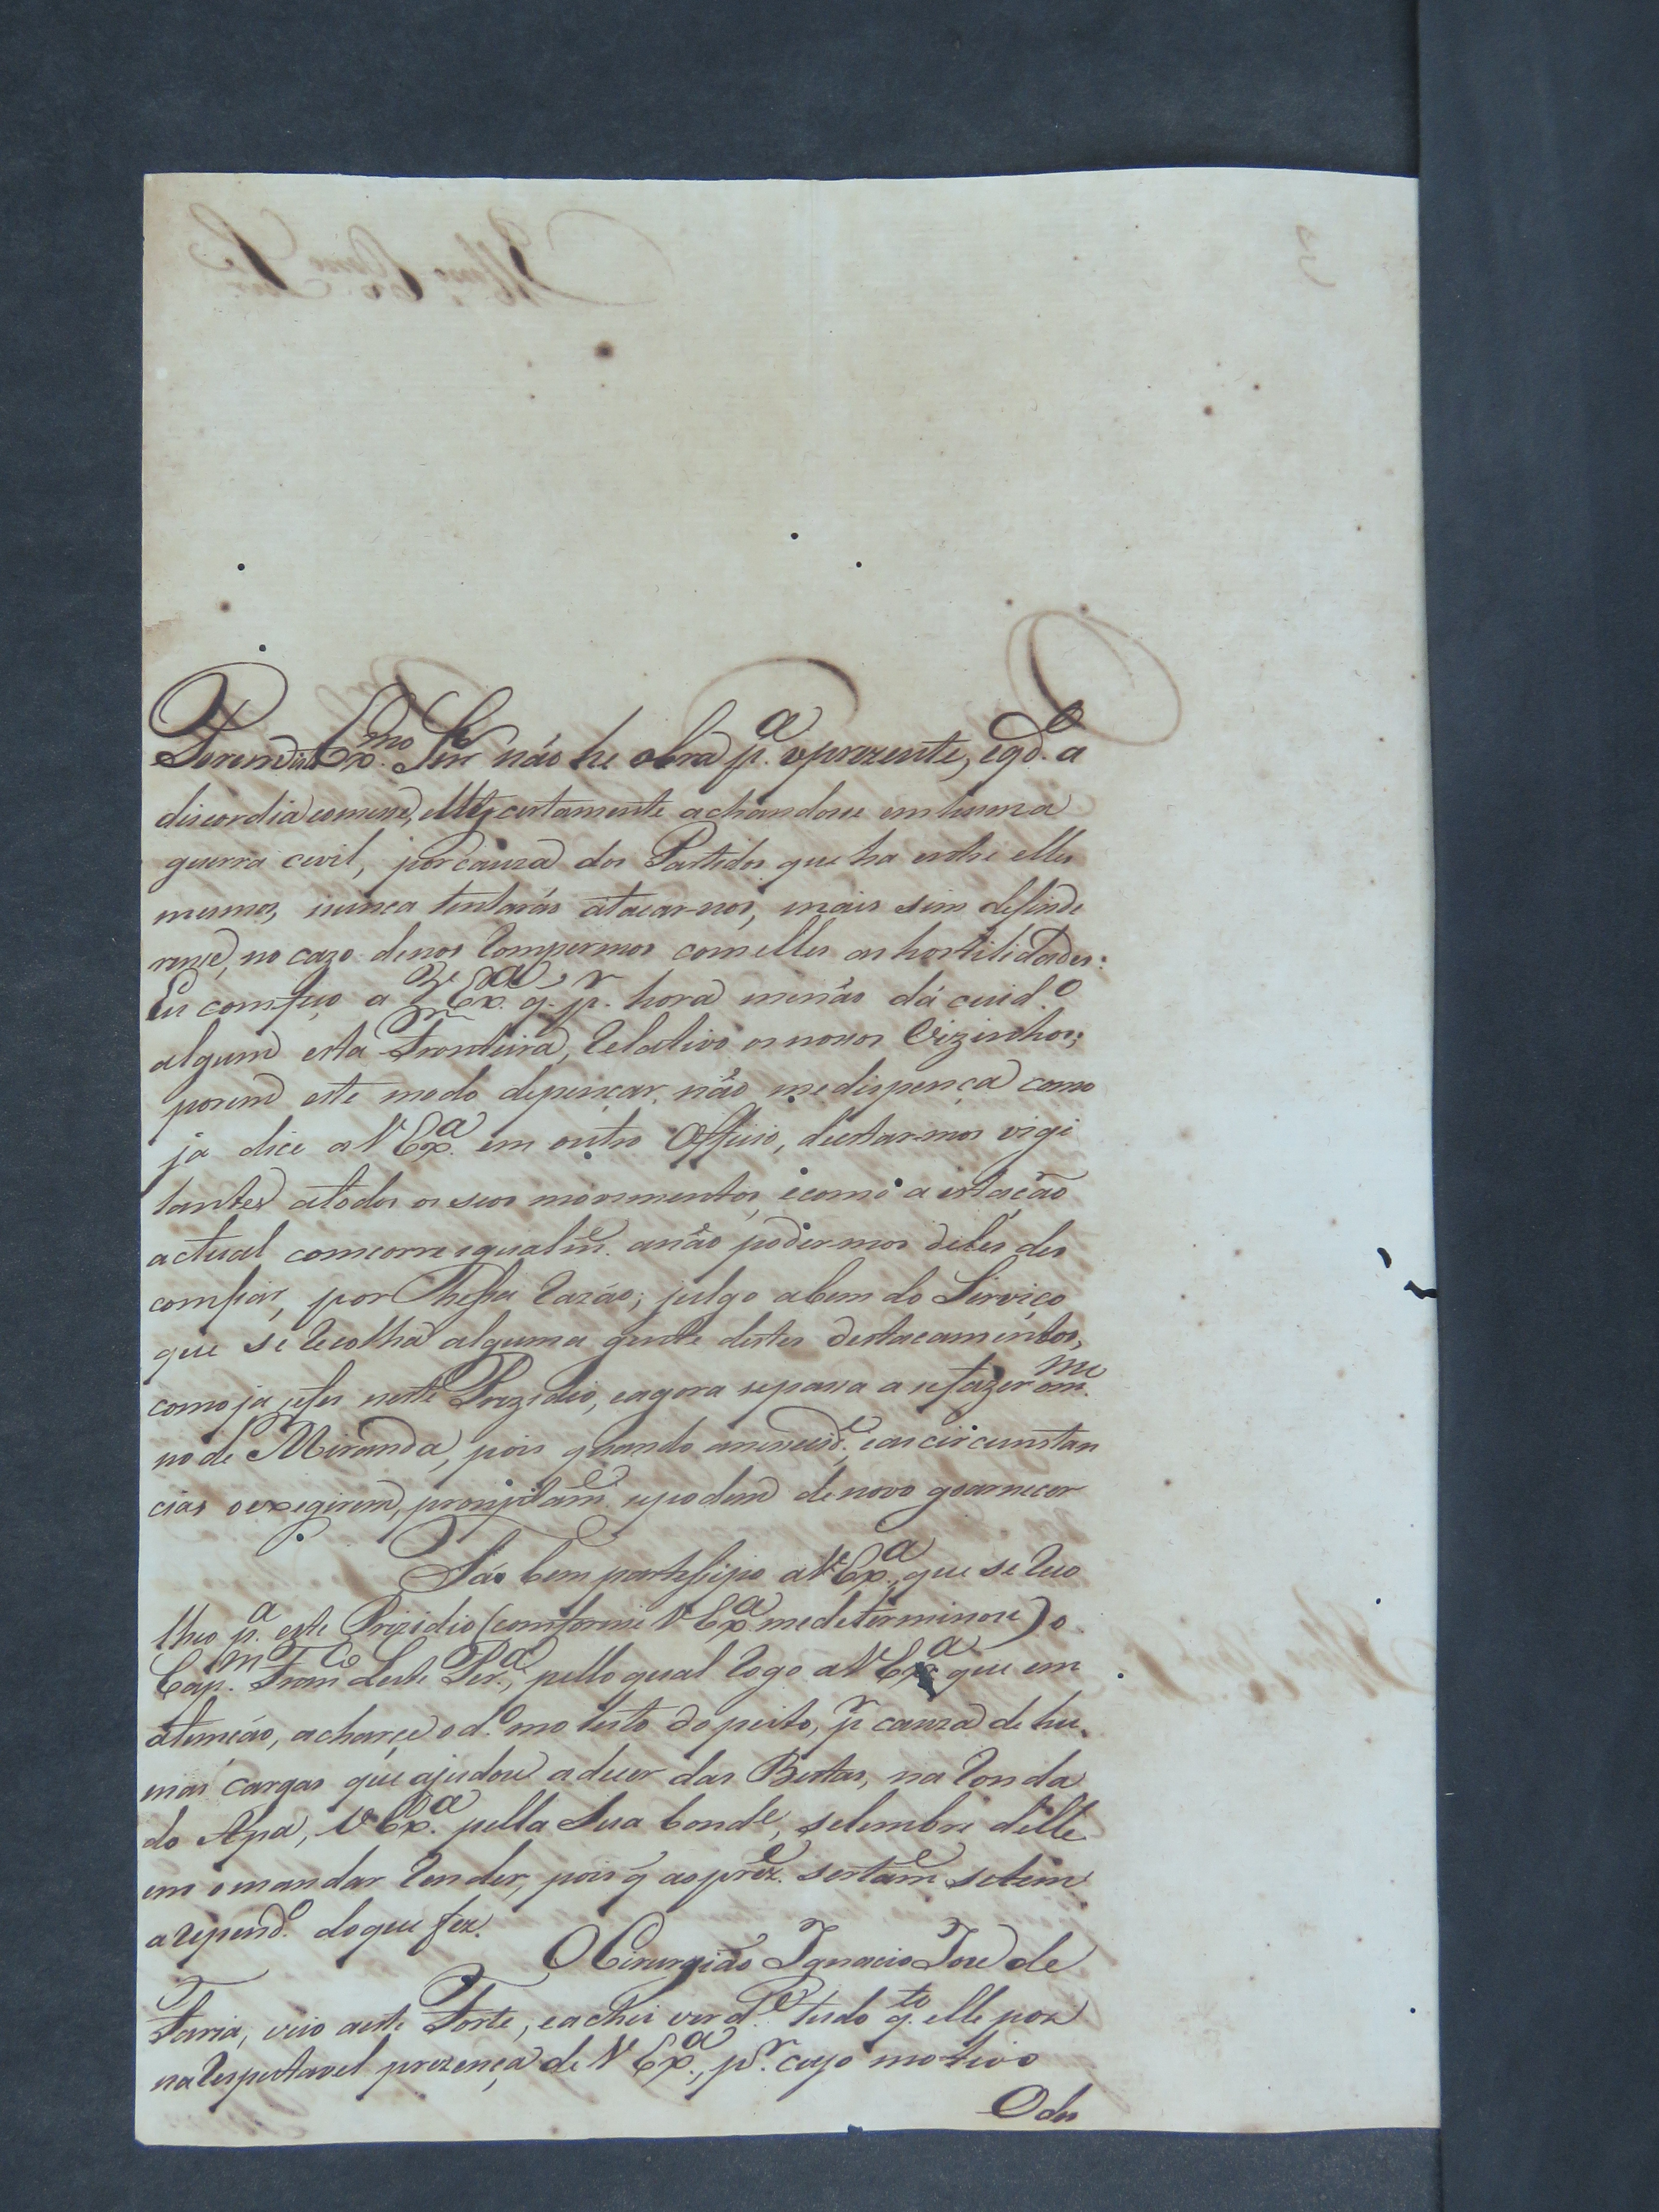 Porem Ex.mo Snr não he obra p.a oprezente, eqd.o a
discordia comesse, elles certamente achandose em huma
guerra civil, por cauza dos Partidos que ha entre elles
mesmos, nunca tentarás atacar-nos, mais sim definde
rense, no cazo denos Rompermos comelles as hostilidades:
Eu comfeço a V.Ex.a q. p.r hora menão dá cuid.o
algum esta Fronteira, Relativo os nossos Vizinhos;
porem este modo depençar, não medispença como
ja dice a V Ex.a em outro Officio, deestar-mos vigi
lantes atodos os seos movimentos, ecomo a estação
actual comcorre igualm.e anão podermos deles des
comfiar, por Razão; julgo abem do Serviço
que se Recolha alguma gente destes destacamentos,
como ja sefes neste Prezidio, eagora sepassa a sefazer omme
no de Miranda, pois quando anesecid.e, eas circunstan
cias oexegirem, promptam.e sepodem denovo goarnecer
Tão bem partessipo aV.Ex.a, que se Reco
lheo p.a este Prezidio (comforme V Ex.a medeterminou) o
Cap.m Fran.co Leite Per.a, pello qual Rogo aV.Ex.a que em
atenção, acharçe o d.o mo lesto do peito, p.r cauza de hu-
mas cargas que ajudou adecer das Bestas, na Ronda
do Apa, V.Ex.a pella Sua bond.e, selembre delle
em omandar Render, pois q aoprez.e sertam.e setem
arepend.o doque fez.
O Cirurgião Ignacio Joze de
Faria, veio aeste Forte, eachei verd.e tudo q.to elle poz
naRespeitavel prezença de V Ex.a, p.r cujo motivo
Odes